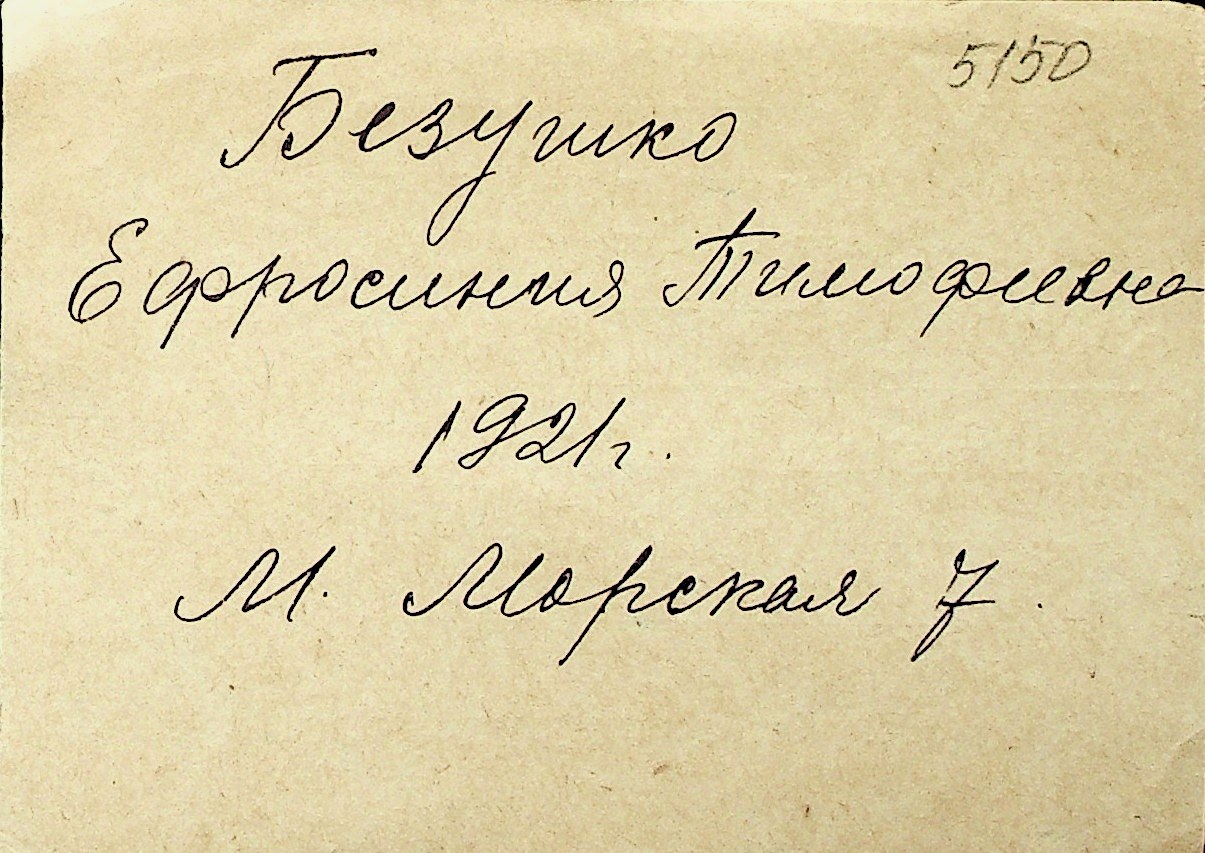 5150
Безушко
Ефросиния Тимофиевна
1921г.
М. Морская 7.